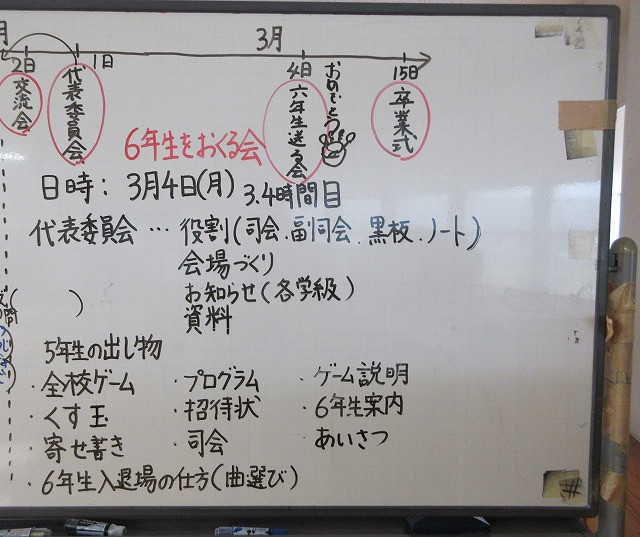 月
3月
2日
1日
4日
15日
交流会
代表委員会
六年生送る会
おめでとう
卒業式
6年生をおくる会
日時： 3月4日(月) 3.4時間目
代表委員会 … 役割(司会.副司会.黒板.ノート)
会場づくり
( ) お知らせ(各学級)
資料
・5年生の出し物
・全校ゲーム ・プログラム ・ゲーム説明
・くす玉 ・招待状 ・6年生案内
・寄せ書き ・司会 ・あいさつ
・6年生入退場の仕方(曲選び)